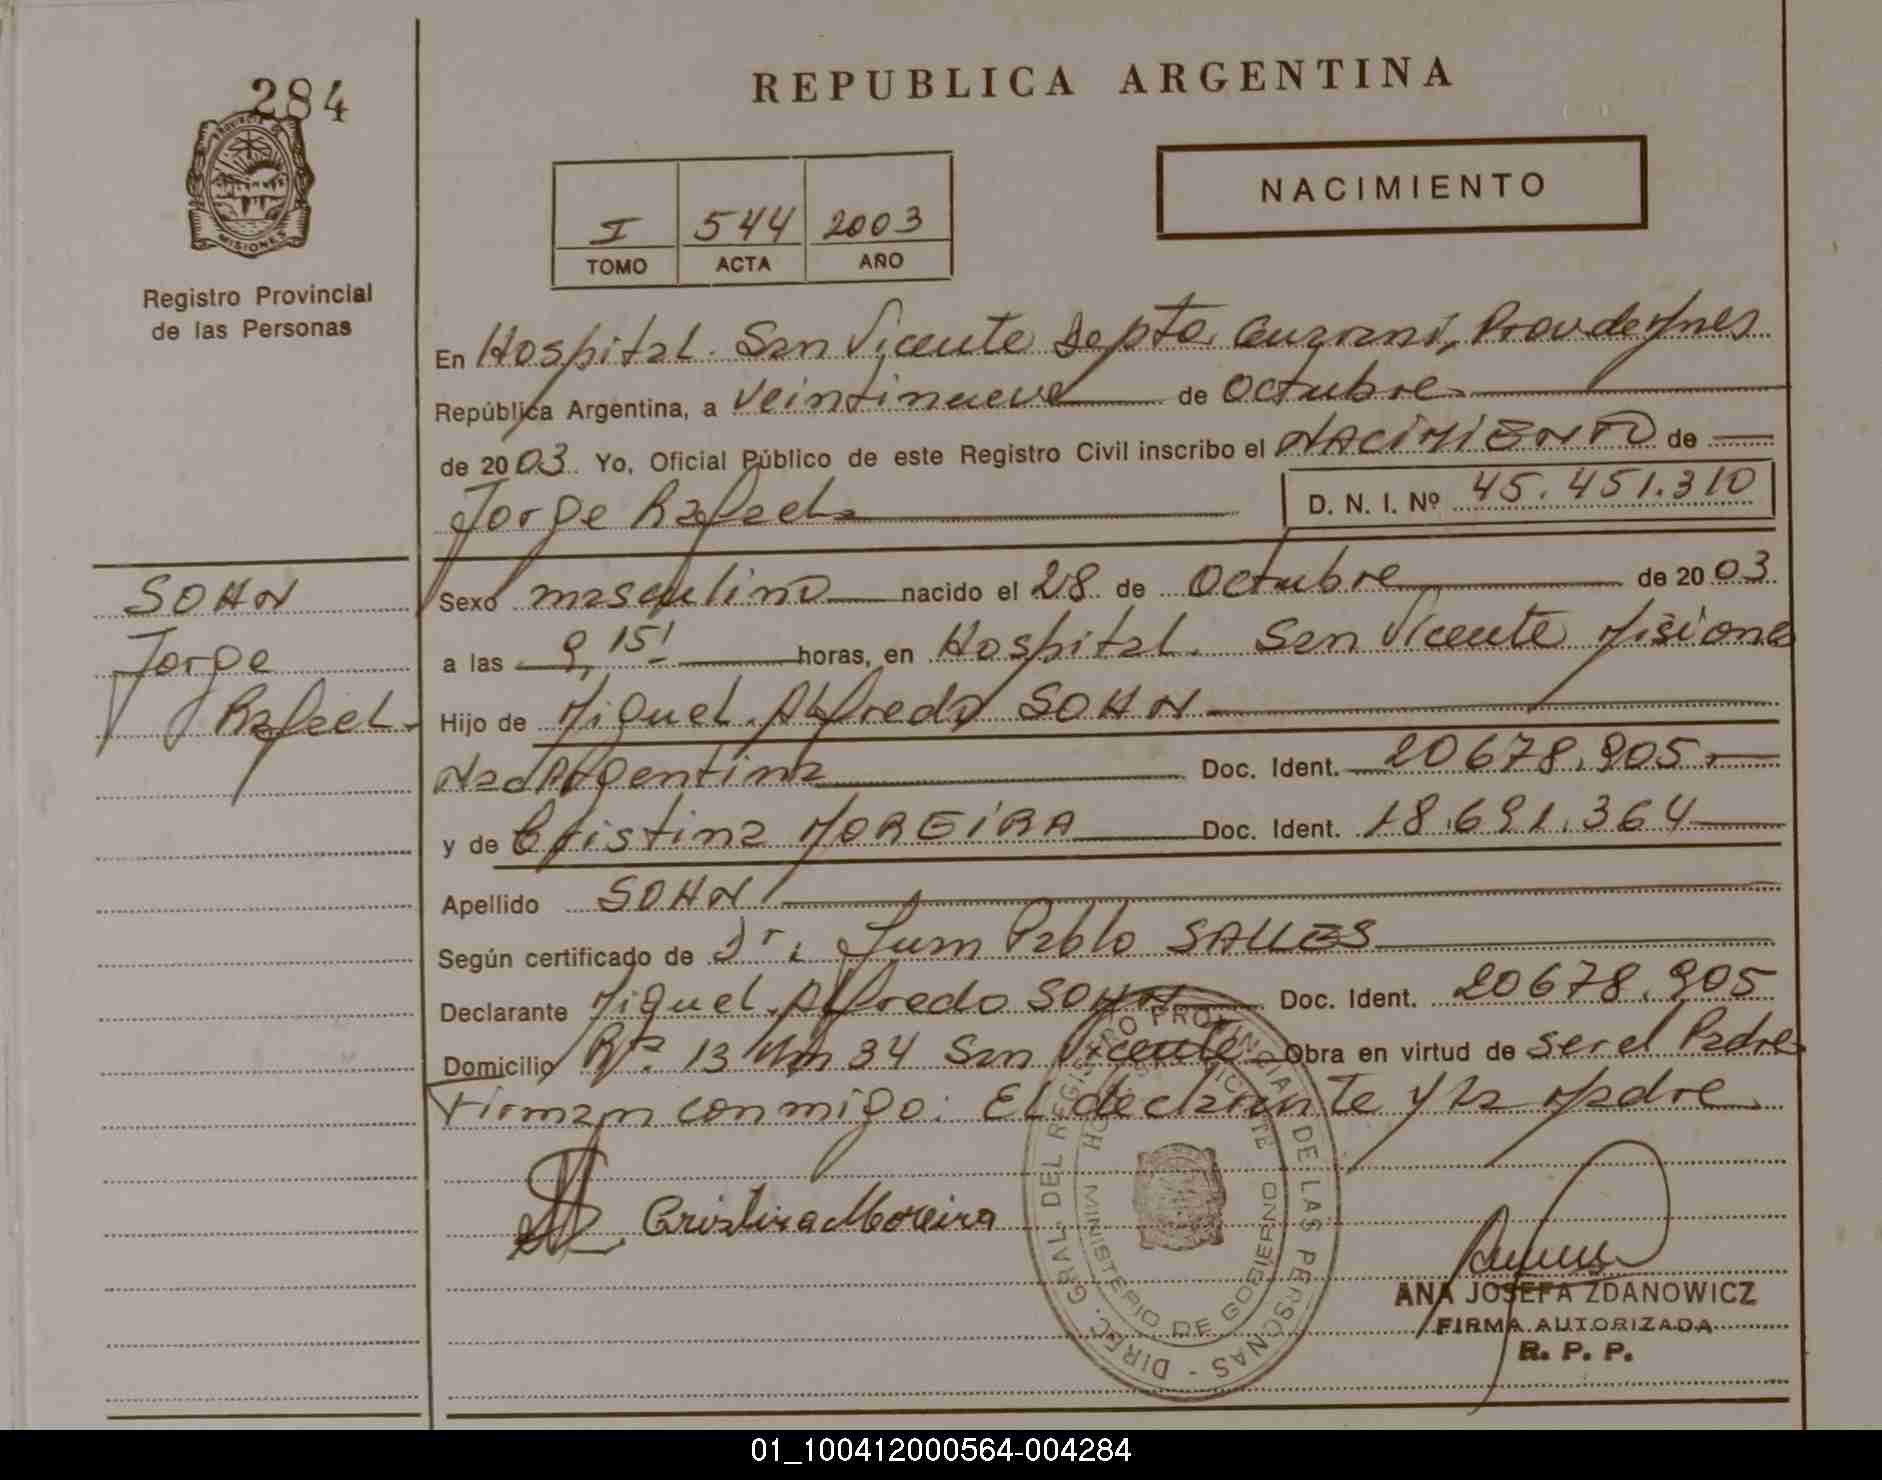 284
PROVINCIA DE
MISIONES
Registro Provincial
de las Personas
SOHN
Jorge
Rafael
REPUBLICA ARGENTINA
I 544 2003
TOMO ACTA AÑO
NACIMIENTO
En Hospital. San Vicente Depto Guarani, Prov de Mnes
República Argentina, a veintinueve de Octubre
de 2003. Yo, Oficial Público de este Registro Civil inscribo el NACIMIENTO de
Jorge Rafael D. N. I. Nº 45.451.310
Sexo masculino nacido el 28 de Octubre de 2003
a las 9,15' horas, en Hospital. San Vicente Misiones
Hijo de Miguel Alfredo SOHN
Nac Argentina Doc. Ident. 20678.905
y de Cristina MOREIRA Doc. Ident. 18.691.364
Apellido SOHN
Según certificado de Dr. Juan Pablo SALLES
Declarante Miguel Alfredo SOHN Doc. Ident. 20678.905
Domicilio Rta. 13 Km 34 San Vicente Obra en virtud de ser el Padre
Firman conmigo: El declarante y la Madre
Cristina Moreira
DIREC. GRAL. DEL REGISTRO PROVINCIAL DE LAS PERSONAS -
MINISTERIO DE GOBIERNO
ANA JOSEFA ZDANOWICZ
FIRMA AUTORIZADA
R. P. P.
01_100412000564-004284